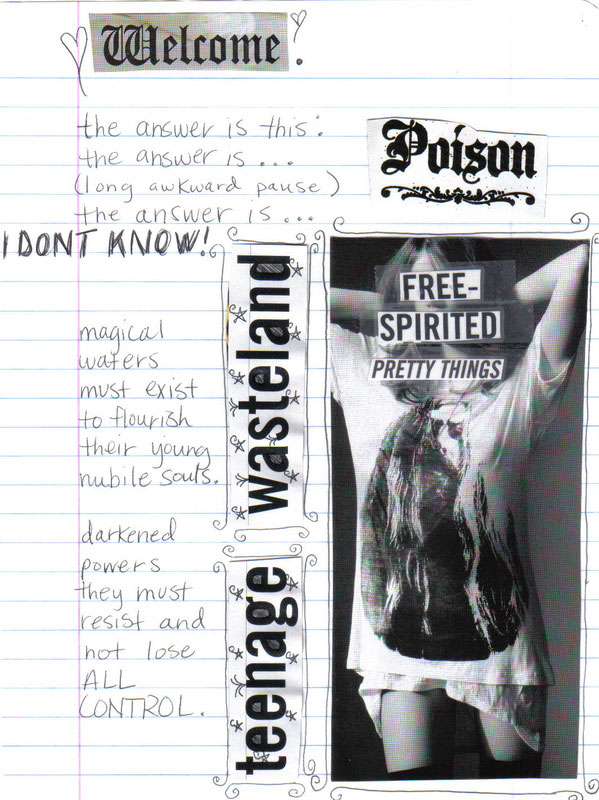 Welcome!
the answer is this:
the answer is...
(long awkward pause)
the answer is...
I DONT KNOW!
Poison
FREE-
SPIRITED
PRETTY THINGS
magical
waters
must exist
to flourish
their young
nubile souls.
darkened
powers
they must
resist and
not lose
ALL
CONTROL.
teenage wasteland